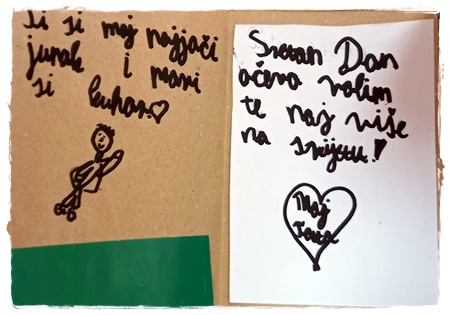 Ti si moj najjači
junak i pravi
si kuhar.
Sretan Dan
očeva volim
te naj više
na svijetu!
Moj
Tata